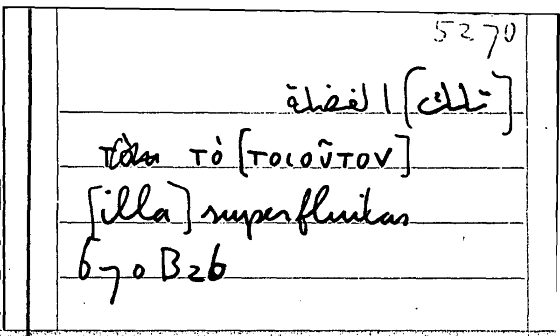 5270
[تلك] الفضلة
τὸ [τοιοῦτον]
[illa] superfluitas
670 B26